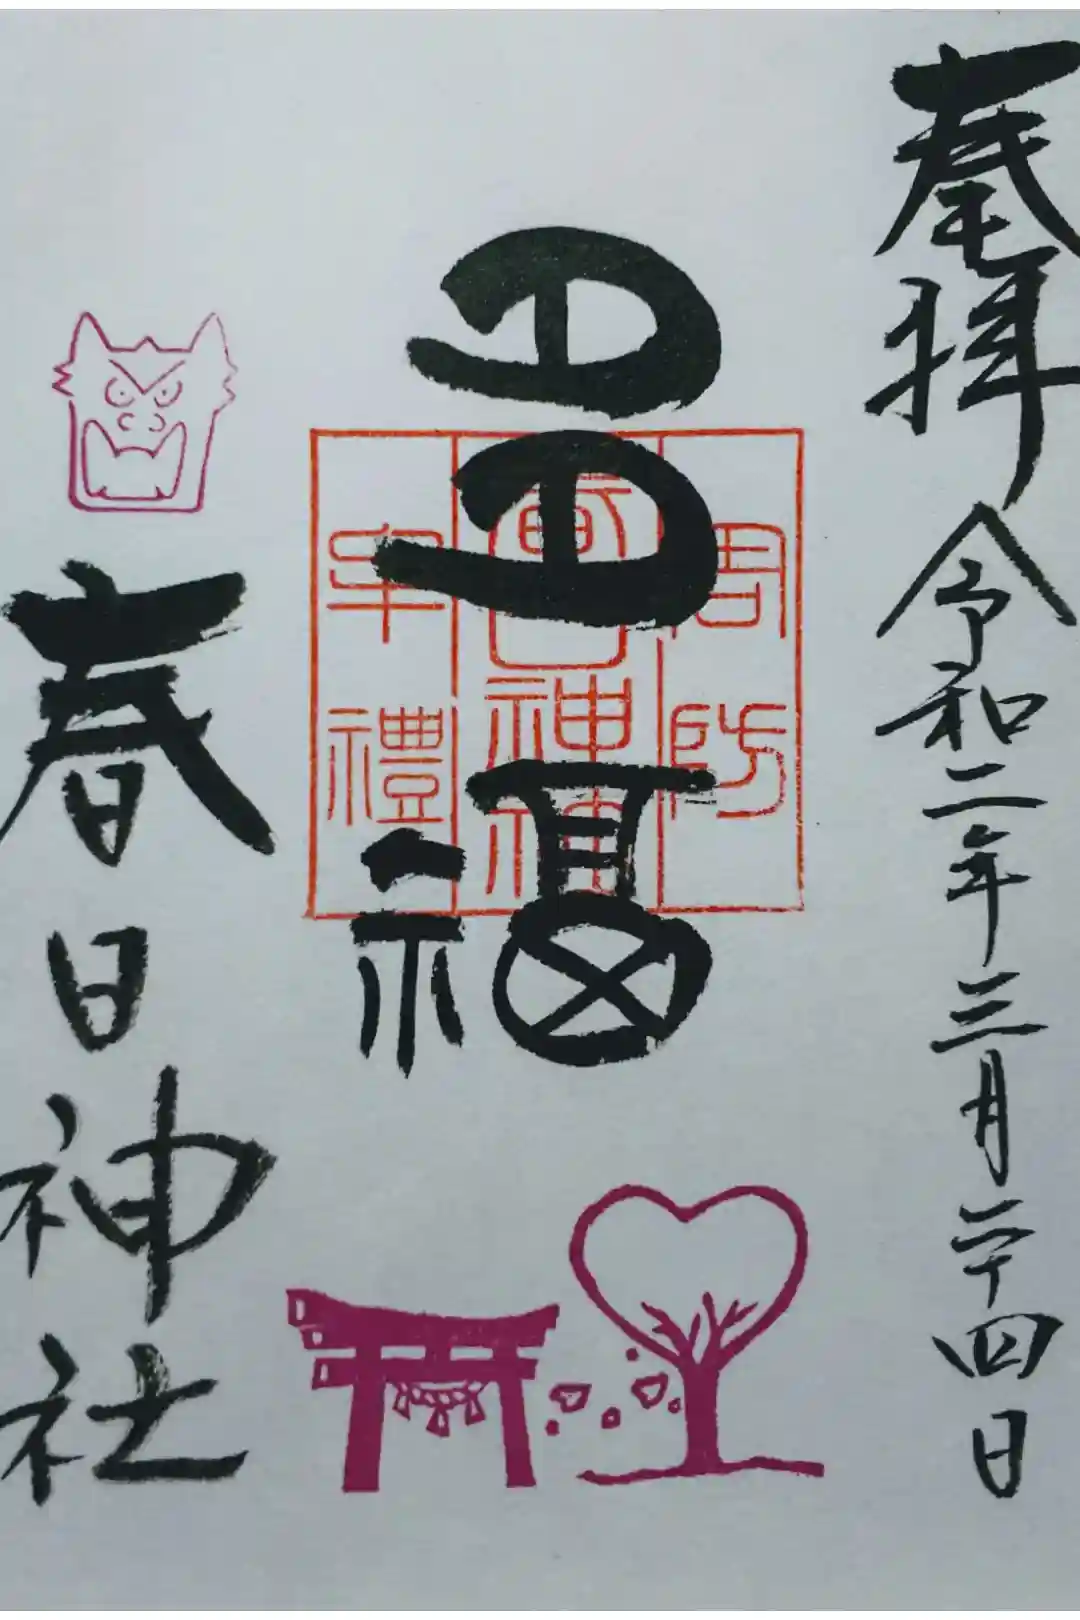 奉拝 令和二年三月二十四日
福
周防
春日神
牟禮
春日神社